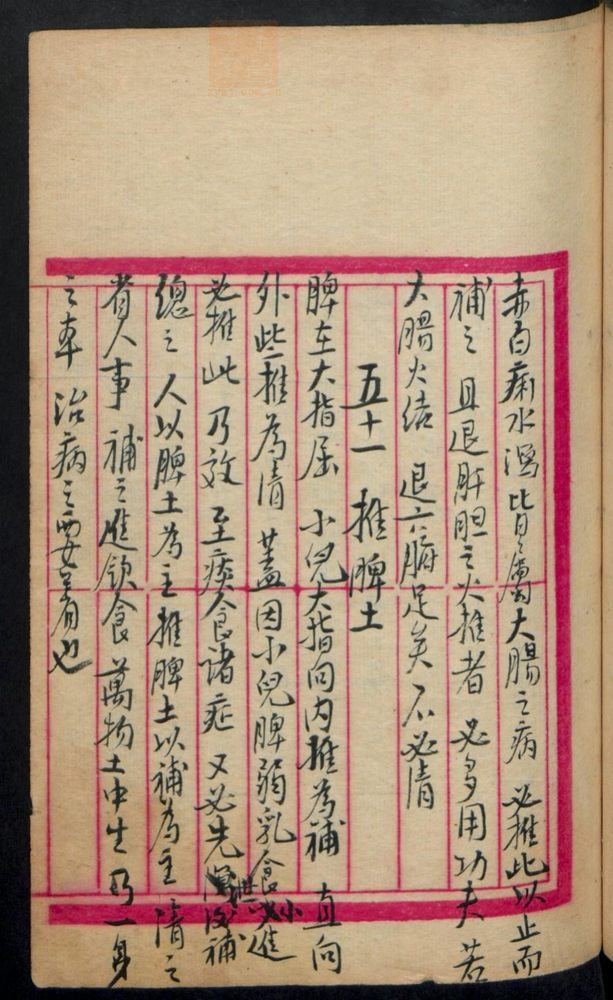 赤白痢水瀉皆屬大腸之病 必推此以止而
補之 且退肝胆之火推者 必多用功夫 若
大腸火結 退六腑足矣 不必清
五十一 推脾土
脾在大指屈 小兒大指向内推為補 直向
外些推為清 蓋因小兒脾弱乳食少進
必推此 乃效 至痰食諸症 又必先後補
總之 人以脾土為主 推脾土以補為主 清之
者人事 補之進飲食 萬物土中生 乃一身
之本 治病之要着也